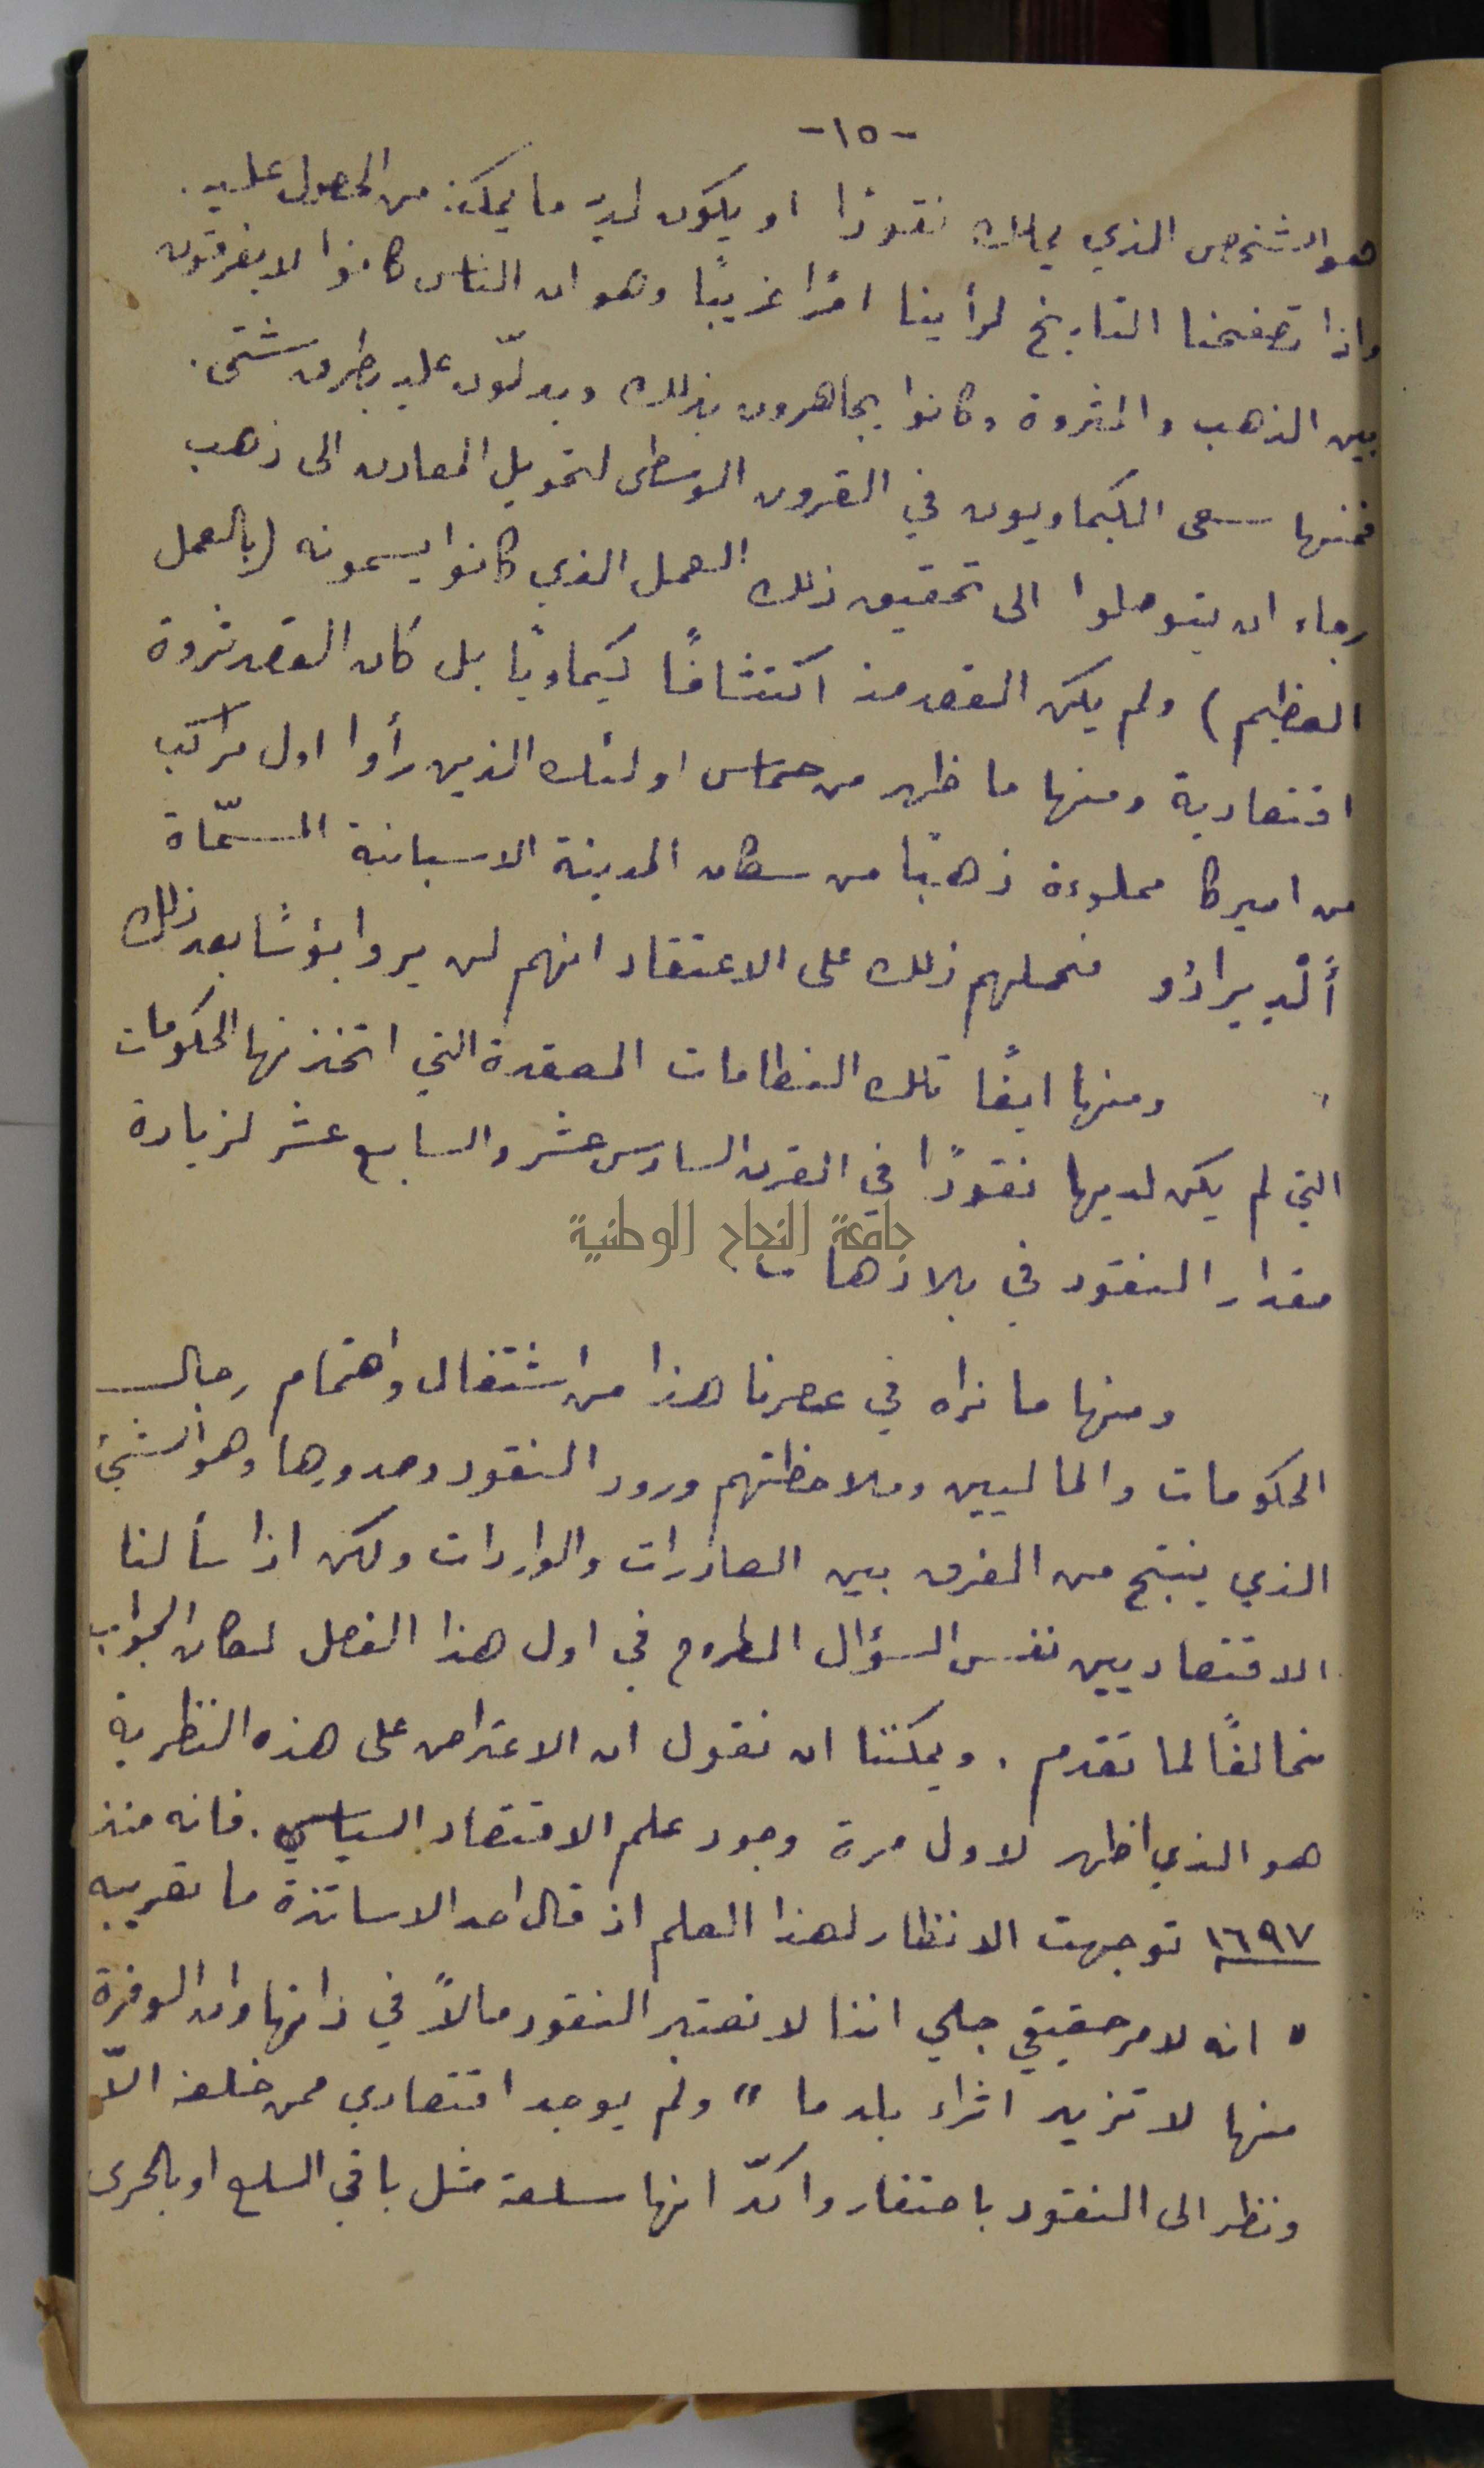 -١٥-
هو الشخص الذي يملك نقودًا او يكون لديه ما يمكنه من الحصول عليه.
واذا تصفحنا التاريخ لرأينا امرًا غريبًا وهو ان الناس كانوا لا يفرقون
بين الذهب والثروة وكانوا يجاهرون بذلك ويدلّون عليه بطرق شتى.
فمنها سعى الكيماويون في القرون الوسطى لتحويل المعادن الى ذهب
رجاء ان يتوصلوا الى تحقيق ذلك العمل الذي كانوا يسمونه (بالعمل
العظيم) ولم يكن القصد منه اكتشافًا كيماويًا بل كان القصد ثروة
اقتصادية ومنها ما ظهر من حماس اولئك الذين رأوا اول مراكب
من اميركا مملوءة ذهبًا من سكان المدينة الاسبانية المسمّاة
ألْديرادُو فحملهم ذلك على الاعتقاد انهم لن يروا بؤسًا بعد ذلك
ومنها ايضًا تلك النظامات المعقدة التي اتخذتها الحكومات
التي لم يكن لديها نقودًا في القرن السادس عشر والسابع عشر لزيادة
جامعة النجاح الوطنية
مقدار النقود في بلادها.
ومنها ما نراه في عصرنا هذا من اشتغال واهتمام رجال
الحكومات والماليين وملاحظتهم ورود النقود وصدورها وهو الشيئ
الذي ينتج من الفرق بين الصادرات والواردات ولكن اذا سألنا
الاقتصاديين نفس السؤال المطروح في اول هذا الفصل لكان الجواب
مخالفًا لما تقدم. ويمكننا ان نقول ان الاعتراض على هذه النظرية
هو الذي اظهر لاول مرة وجود علم الاقتصاد السياسي. فانه منذ
١٦٩٧ توجهت الانظار لهذا العلم اذ قال احد الاساتذة ما تعريبه
" انه لامر حقيقي جلي اننا لا نعتبر النقود مالاً في ذاتها وان الوفرة
منها لا تزيد اثراء بلد ما " ولم يوجد اقتصادي ممن خلفه الاّ
ونظر الى النقود باحتقار واكدّ انها سلعة مثل باقي السلع او بالحرى